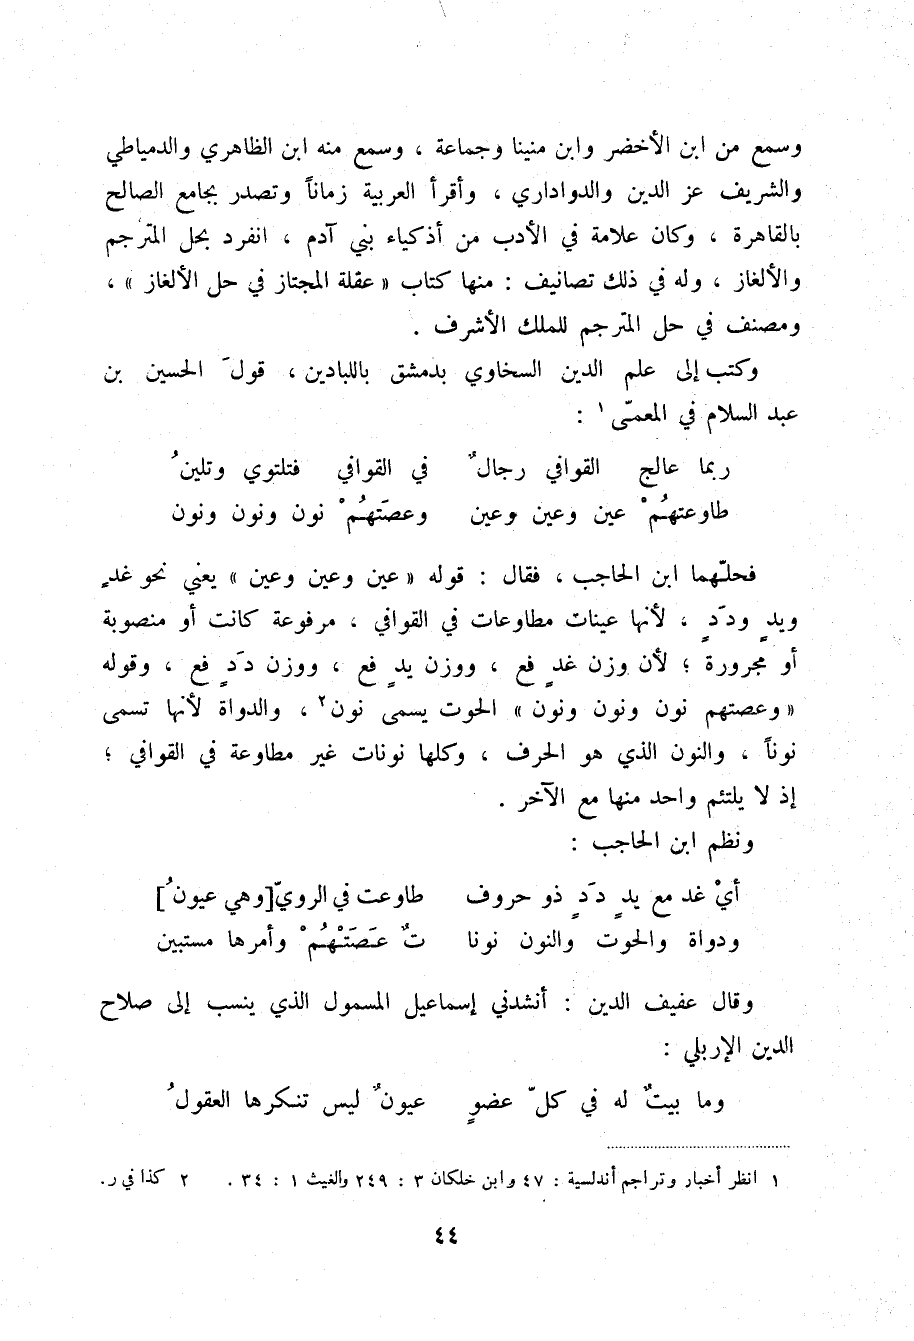 وسمع من ابن الأخضر وابن منينا وجماعة ، وسمع منه ابن الظاهري والدمياطي
والشريف عز الدين والدواداري ، وأقرأ العربية زماناً وتصدر بجامع الصالح
بالقاهرة ، وكان علامة في الأدب من أذكياء بني آدم ، انفرد بحل المترجم
والألغاز ، وله في ذلك تصانيف : منها كتاب « عقلة المجتاز في حل الألغاز » ،
ومصنف في حل المترجم للملك الأشرف .
وكتب إلى علم الدين السخاوي بدمشق باللبادين ، قولَ الحسين بن
عبد السلام في المعمّى ١ :
ربما عالج القوافي رجالٌ في القوافي فتلتوي وتلينُ
طاوعتهُمْ عين وعين وعين وعصَتهُمْ نون ونون ونون
فحلّهما ابن الحاجب ، فقال : قوله « عين وعين وعين » يعني نحو غدٍ
ويدٍ ودَدٍ ، لأنها عينات مطاوعات في القوافي ، مرفوعة كانت أو منصوبة
أو مجرورة ؛ لأن وزن غدٍ فع ، ووزن يدٍ فع ، ووزن دَدٍ فع ، وقوله
« وعصتهم نون ونون ونون » الحوت يسمى نون ٢ ، والدواة لأنها تسمى
نوناً ، والنون الذي هو الحرف ، وكلها نونات غير مطاوعة في القوافي ؛
إذ لا يلتئم واحد منها مع الآخر .
ونظم ابن الحاجب :
أيْ غد مع يدٍ دَدٍ ذو حروف طاوعت في الرويّ [وهي عيونُ]
ودواة والحوت والنون نونا تٌ عَصَتْهُمْ وأمرها مستبين
وقال عفيف الدين : أنشدني إسماعيل المسمول الذي ينسب إلى صلاح
الدين الإربلي :
وما بيتٌ له في كلّ عضوٍ عيونٌ ليس تنكرها العقولُ
١ انظر أخبار وتراجم أندلسية : ٤٧ وابن خلكان ٣ : ٢٤٩ والغيث ١ : ٣٤ . ٢ كذا في ر.
٤٤